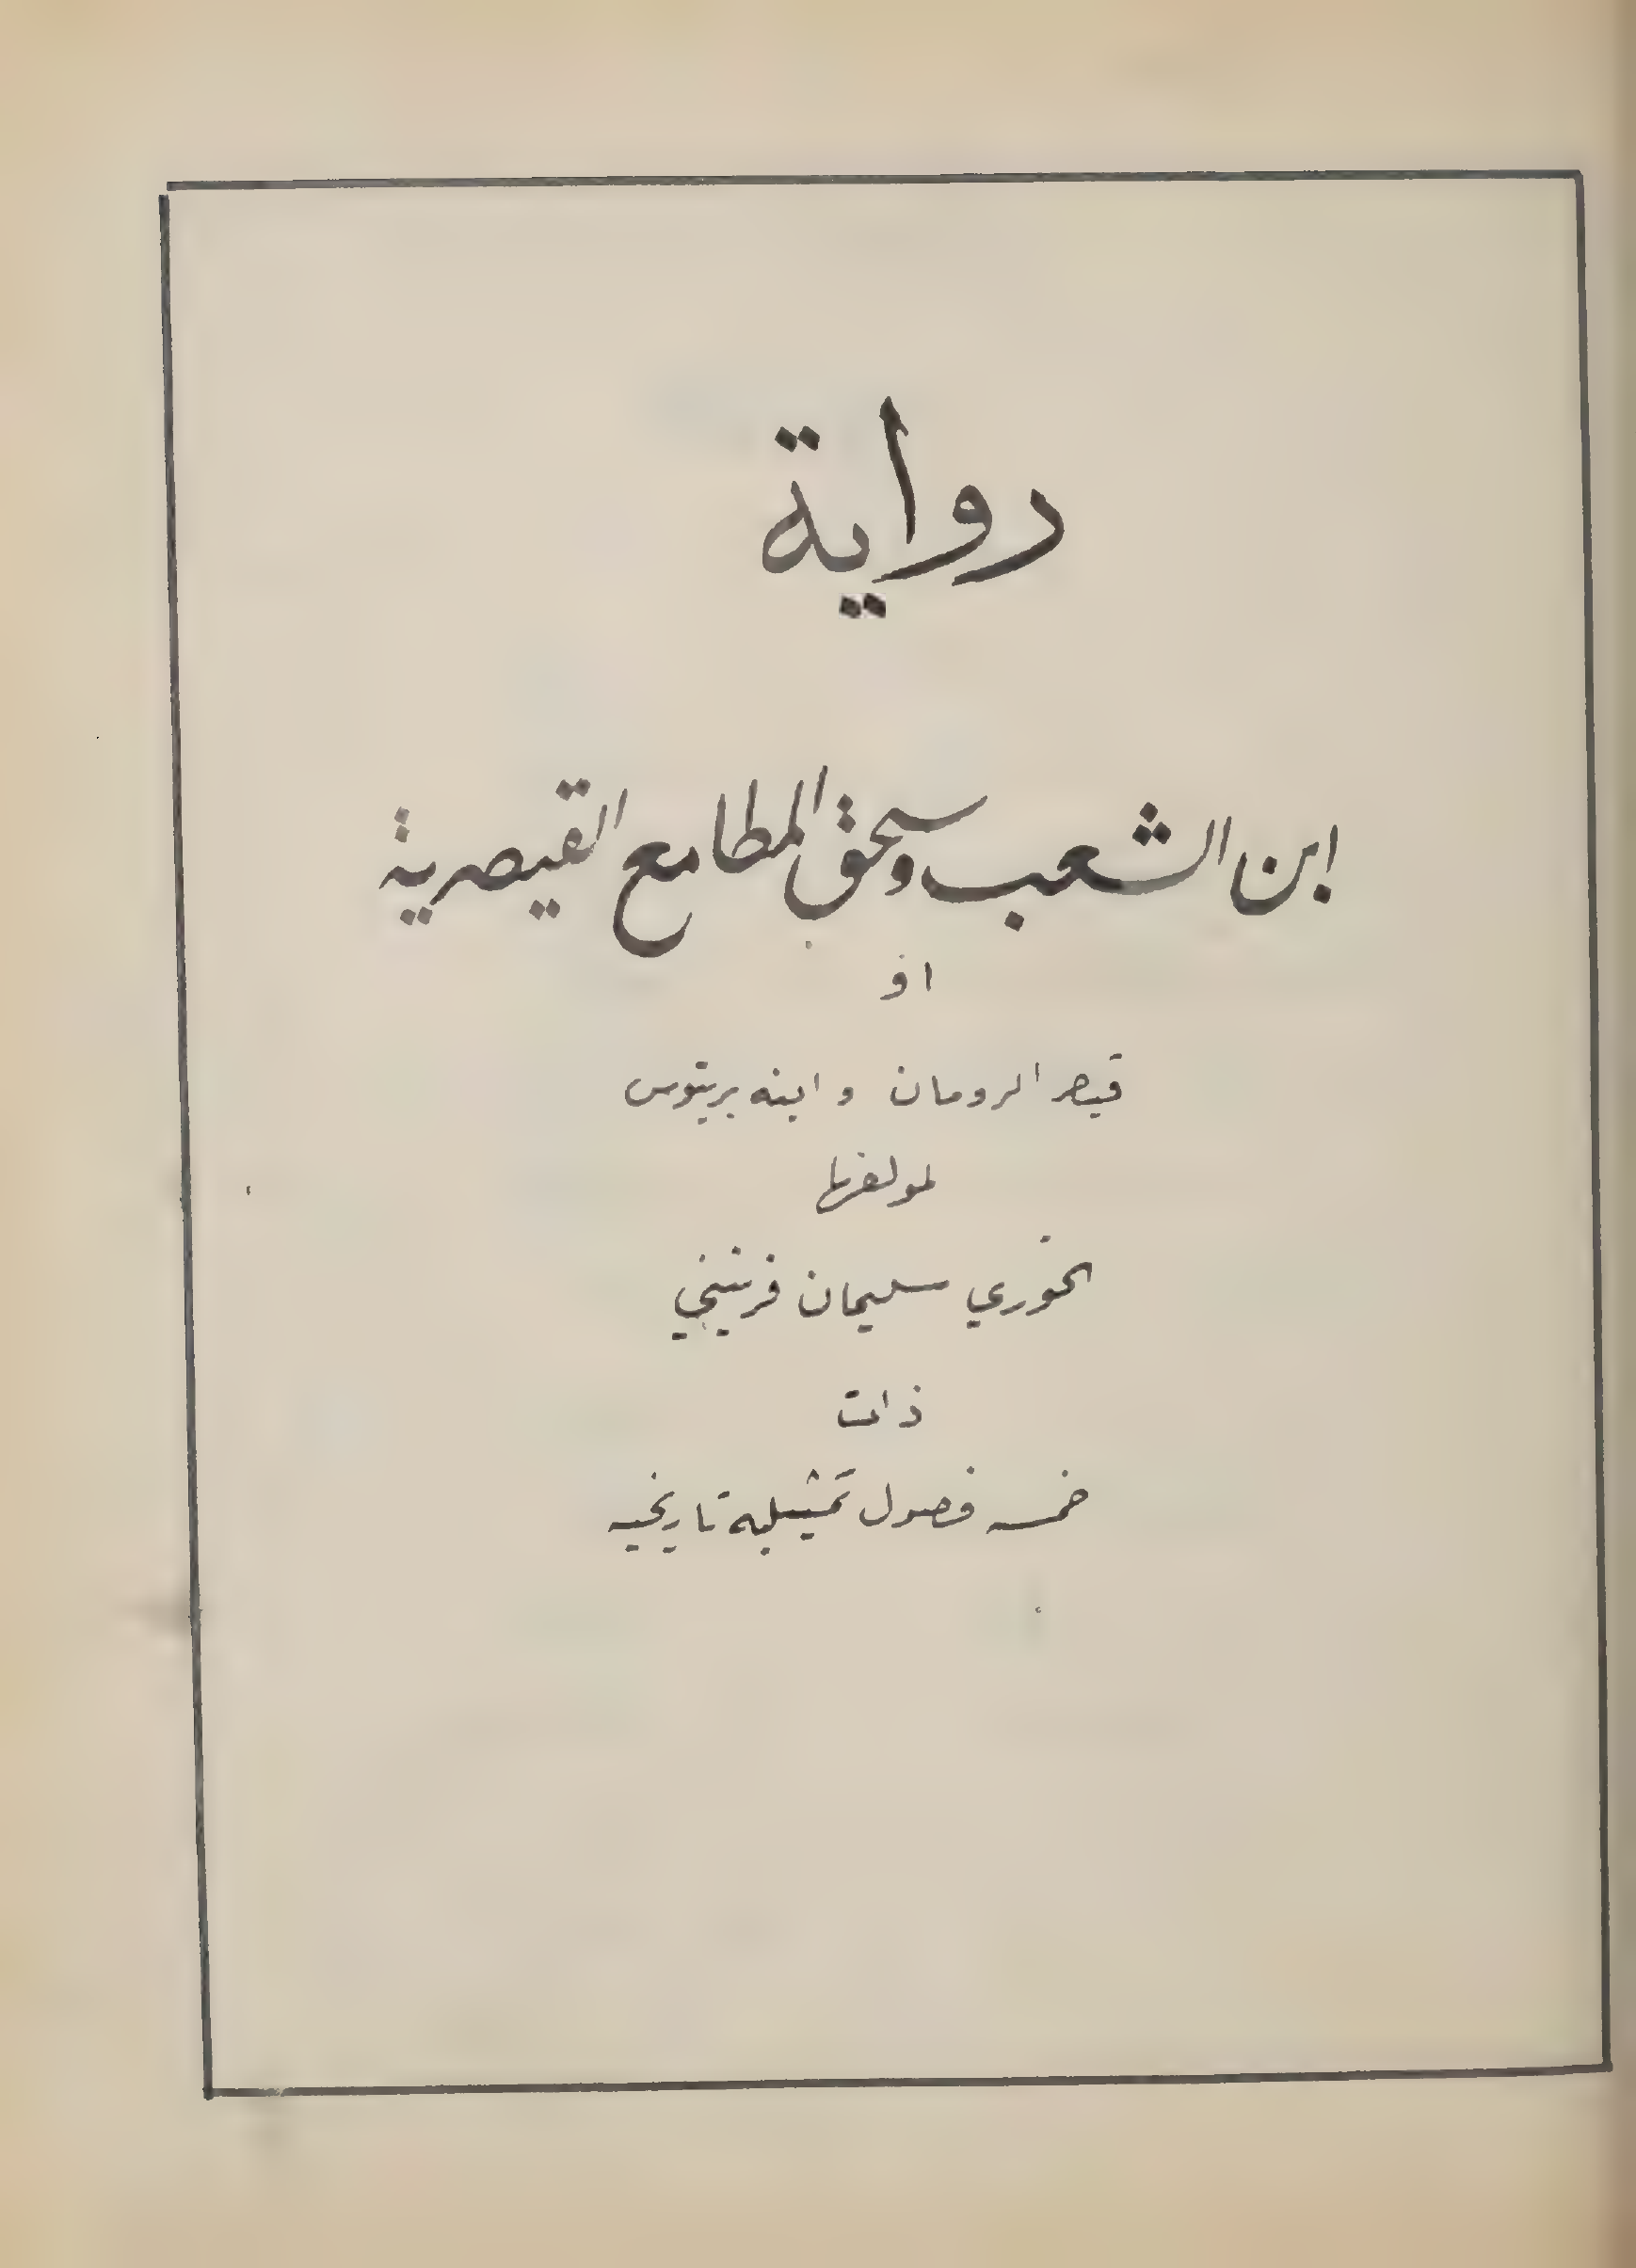 رواية
ابن الشعب وسحق المطامع القيصرية
او
قيصر الرومان وابنه بريتوس
لمولفها
الخوري سليمان
ذات
خمسه فصول تمثيليه تاريخيه